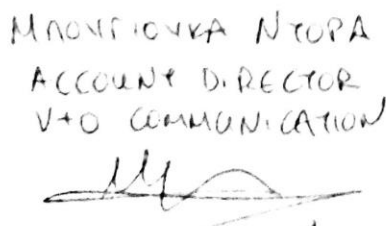 ΜΠΟΥΡΙΟΥΚΑ ΝΤΟΡΑ
ACCOUNT DIRECTOR
V+O COMMUNICATION